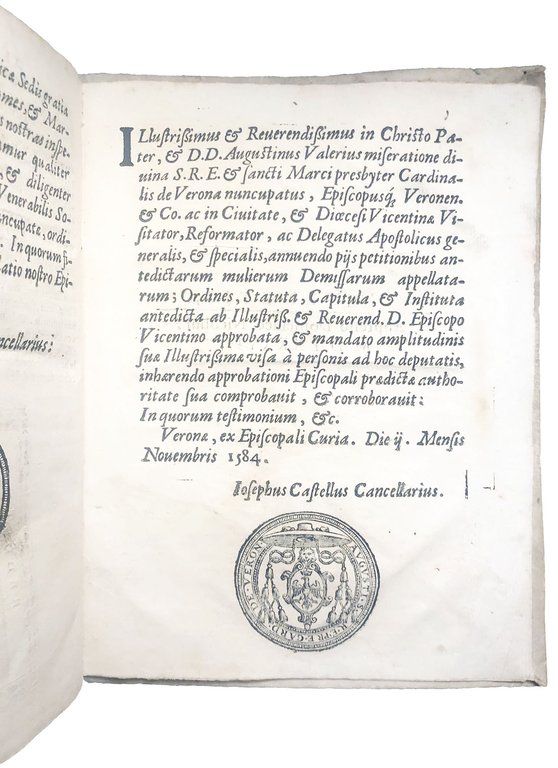 icæ Sedis gratia
mes, & Mar-
s nostras inspe-
mur qualiter
, & diligenter
Venerabilis So-
ncupate, ordi-
. In quorum fi-
atio nostro Epi-
ncellarius:
ILlustrißimus & Reuerendißimus in Christo Pa-
ter, & D.D. Augustinus Valerius miseratione di-
uina S.R.E. & sancti Marci presbyter Cardina-
lis de Verona nuncupatus, Episcopusq́; Veronen.
& Co. ac in Ciuitate, & Diœcesi Vicentina Vi-
sitator, Reformator, ac Delegatus Apostolicus ge-
neralis, & specialis, annuendo pijs petitionibus an-
tedictarum mulierum Demissarum appellata-
rum; Ordines, Statuta, Capitula, & Instituta
antedicta ab Illustriß. & Reuerend. D. Episcopo
Vicentino approbata, & mandato amplitudinis
suæ Illustrißimæ visa à personis ad hoc deputatis,
inhærendo approbationi Episcopali prædictæ autho-
ritate sua comprobauit, & corroborauit:
In quorum testimonium, &c.
Veronæ, ex Episcopali Curia. Die ij. Mensis
Nouembris 1584.
Iosephus Castellus Cancellarius.
AVGVSTI S. R. E. PRE. CARD. DE. VERON